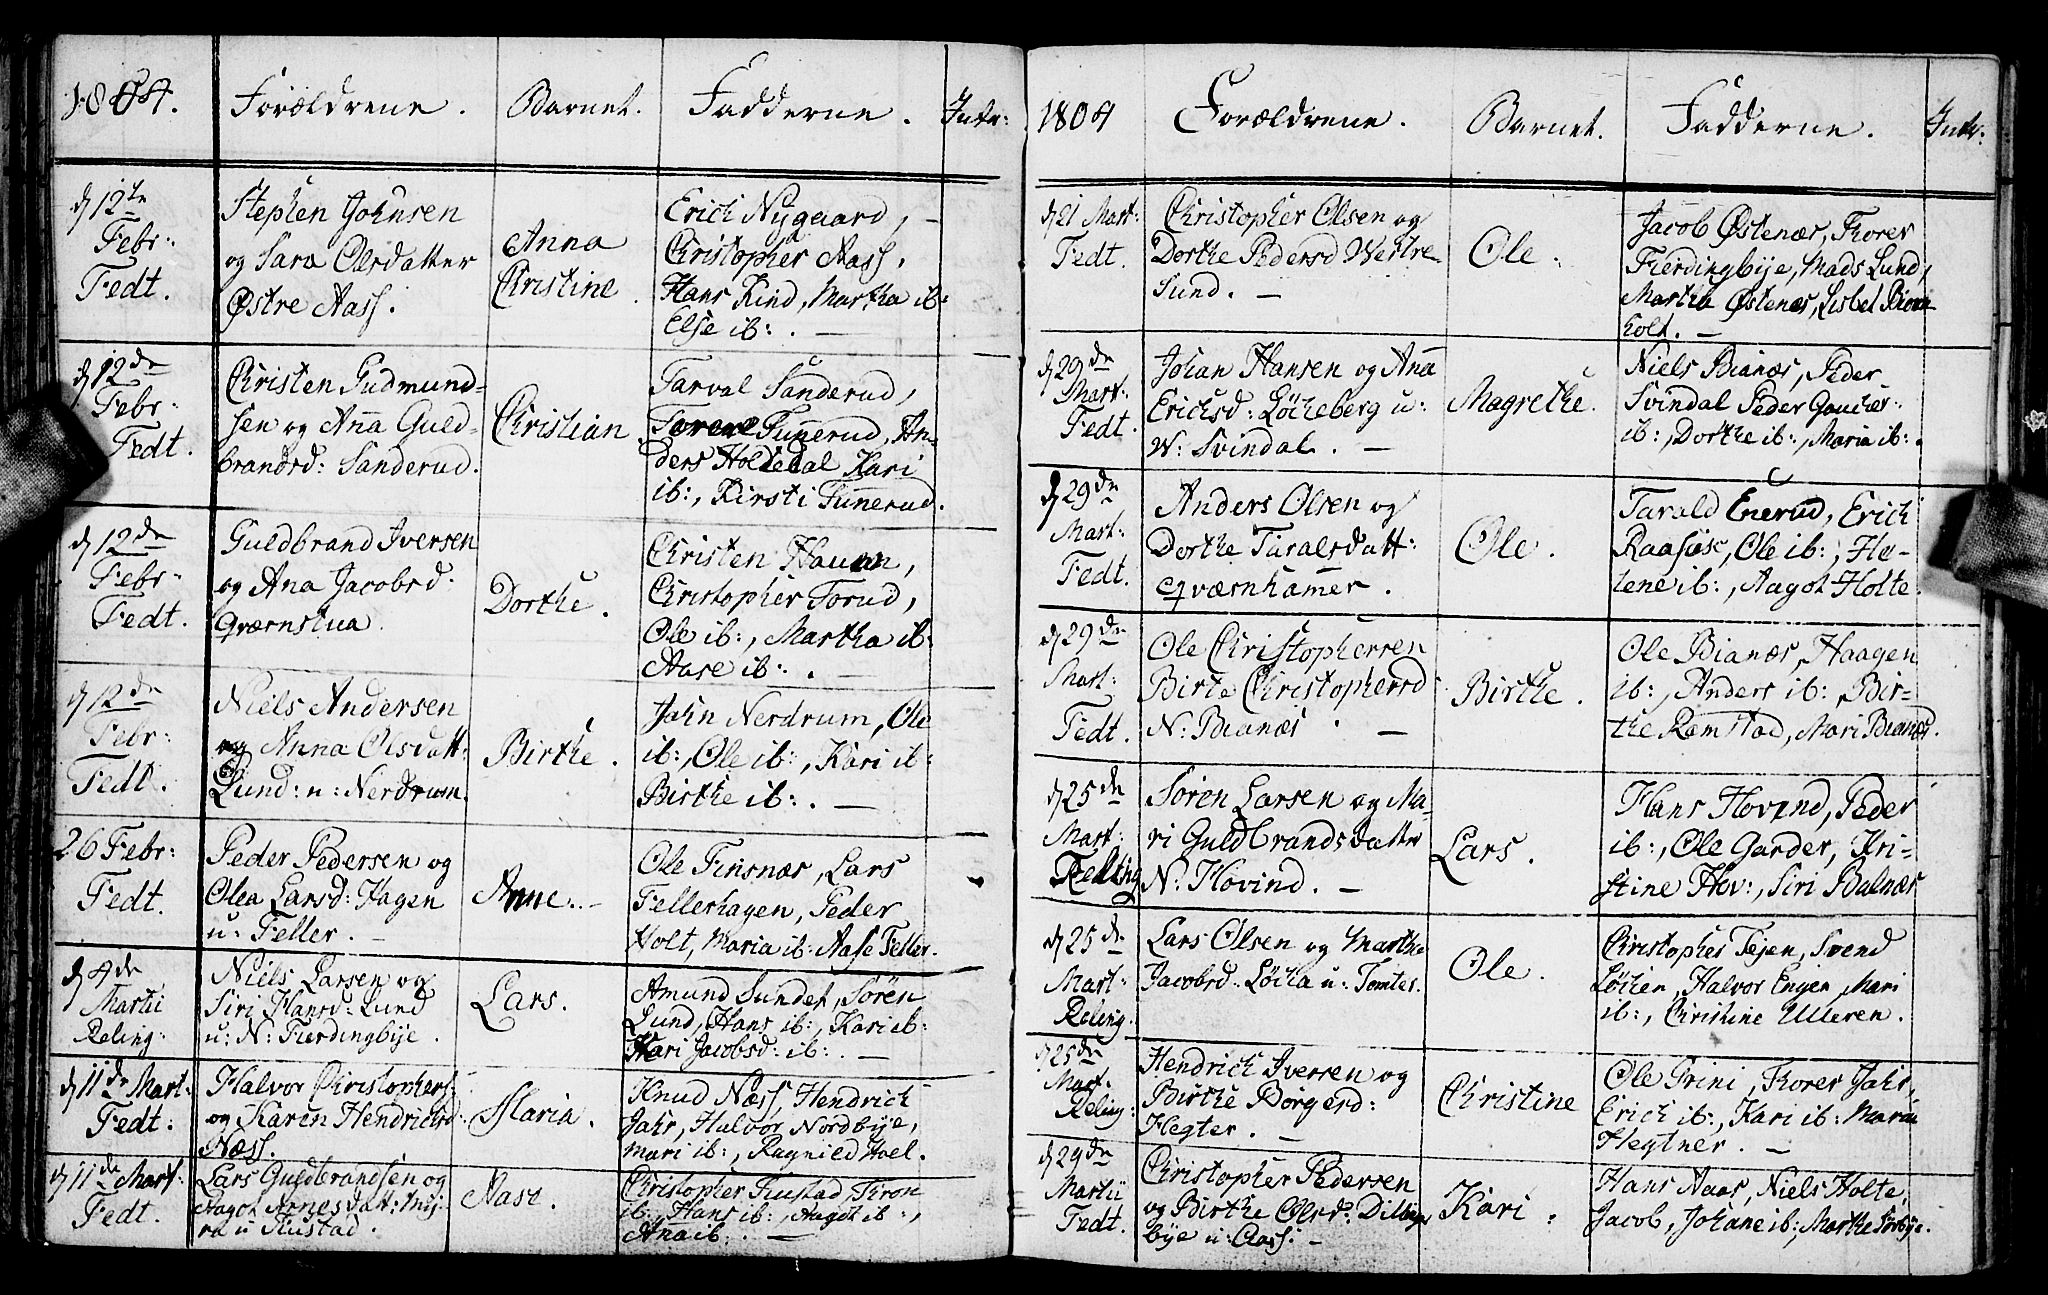 1804. Forældrene. Barnet. Fadderne. Intr:
d 12te Febr: Fedt.
Stephen Johnsen
og Sara Olsdatter
Østre Aass.
Anna
Christine.
Erich Nygaard,
Christopher Aass,
Hans Kind, Martha ib:
Else ib:.
d 12de Febr: Fedt.
Christen Gudmund-
sen og Anna Guld-
brandsd: Sanderud.
Christian
Tarval Sanderud,
Funnerud, An-
ders Holdedal Kari
ib:, Kirsti Funnerud.
d 12de Febr: Fedt.
Guldbrand Iversen
og Ana Jacobsd:
Qværnstua.
Dorthe.
Christen Hauan,
Christopher Torud,
Ole ib:, Martha ib:
Aase ib:.
d 12de Febr: Fedt.
Niels Andersen
og Anna Olsdatt:
Lund: u: Nerdrum.
Birthe.
John Nerdrum, Ole
ib:, Ole ib:, Kari ib:
Birthe ib:.
26 Febr: Fedt.
Peder Pedersen og
Olea Larsd: Hagen
u: Feller.
Anne.
Ole Finsnær, Lars
Fellerhagen, Peder
Holt, Maria ib: Aase Feller.
d 4de Martii Reling:
Niels Larsen og
Siri Hansd: Lund
u: N: Fierdingbye.
Lars.
Amund Sundet, Sören
Lund, Hans ib:, Kari ib:
Kari Jacobsd: ib:.
d 11de Mart: Fedt:
Halvor Christophers:
og Karen Hendrichsd:
Næss.
Maria.
Knud Næss, Hendrich
Jahr, Halvor Nordbye,
Mari ib:, Ragnild Hoel.
d 11de Mart: Fedt.
Lars Guldbrandsen og
Aagot Arnesdatt: Myj-
ra u Rustad.
Aase.
Christopher Rustad, Tron
ib:, Hans ib:, Aagot ib:,
Ana ib:.
1804 Forældrene. Barnet. Fadderne. Intr:
d 21 Mart: Fedt.
Christopher Olsen og
Dorthe Pedersd Westre
Sund.
Ole.
Jacob Østenær, Torer
Fierdingbye, Mads Lund,
Martha Østenær, Lisbet Biørn
holt.
d 29de Mart: Fedt.
Johan Hansen og Anna
Erichsd: Löcheberg u:
W: Svindal.
Magrethe.
Niels Bianæs, Peder
Svindal Peder
ib:, Dorthe ib:, Maria ib:.
d 29de Mart: Fedt.
Anders Olsen og
Dorthe Taralsdatt:
Qværnhammer.
Ole.
Tarald Enerud, Erich
Raasiøe, Ole ib:, He-
lene ib:, Aagot Holte.
d 29de Mart: Fedt.
Ole Christophersen
Birte Christophersd
N: Bianæs.
Birthe.
Ole Bianæs, Haagen
ib:, Anders ib:, Bir-
the Ramstad, Mari Bianæs.
d 25de Mart: Reling
Sören Larsen og Ma-
ri Guldbrandsdatter
N: Hovind.
Lars.
Hans Hovind, Peder
ib:, Ole Garder, Kri-
stine Hov:, Siri Balnær
d 25de Mart: Reling.
Lars Olsen og Marthe
Jacobsd: Löcha u: Tomter.
Ole.
Christopher Tejen, Svend
Löchen, Halvor Engen, Mari
ib:, Christine Ulleren.
d 25de Mart. Reling:
Hendrich Iversen og
Birthe Borgersd:
Hegter.
Christine
Ole Trini, Torer Jahr,
Erich ib:, Kari ib: Maria
Hegtner.
d 29de Martii Fedt.
Christopher Pedersen
og Birthe Olsd: Dilling
bye u: Aass:
Kari.
Hans Aaas, Niels Holte,
Jacob, Johane ib:, Marthe Sørbye.